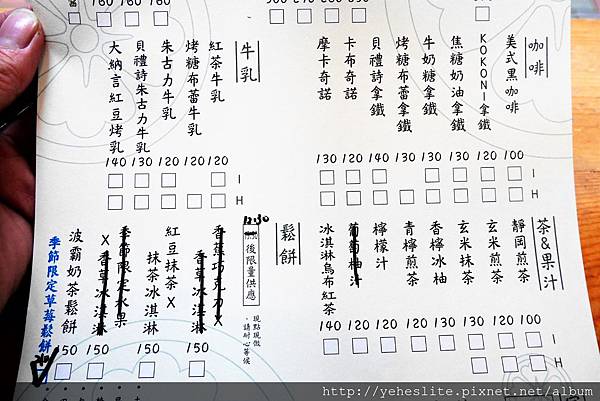 160 160
咖啡
美式黑咖啡 100
KOKONI拿鐵 120
焦糖奶油拿鐵 130
牛奶糖拿鐵 130
烤糖布蕾拿鐵
貝禮詩拿鐵 140
卡布奇諾 120
摩卡奇諾 130
I
H
牛乳
紅茶牛乳 120
烤糖布蕾牛乳
朱古力牛乳 120
貝禮詩朱古力牛乳 130
大納言紅豆烤乳 140
I
H
茶&果汁
靜岡煎茶 100
玄米煎茶 120
玄米抹茶 130
香檸冰柚 120
青檸煎茶 120
檸檬汁 120
葡萄柚汁 120
冰淇淋烏布紅茶 140
I
H
鬆餅
12:30
後限量供應
現點現做
，請耐心等候
香蕉巧克力X
香草冰淇淋 150
紅豆抹茶X
抹茶冰淇淋 150
季節限定水果
X香草冰淇淋 150
波霸奶茶鬆餅 150
季節限定草莓鬆餅
http://yeheslite.pixnet.net/album